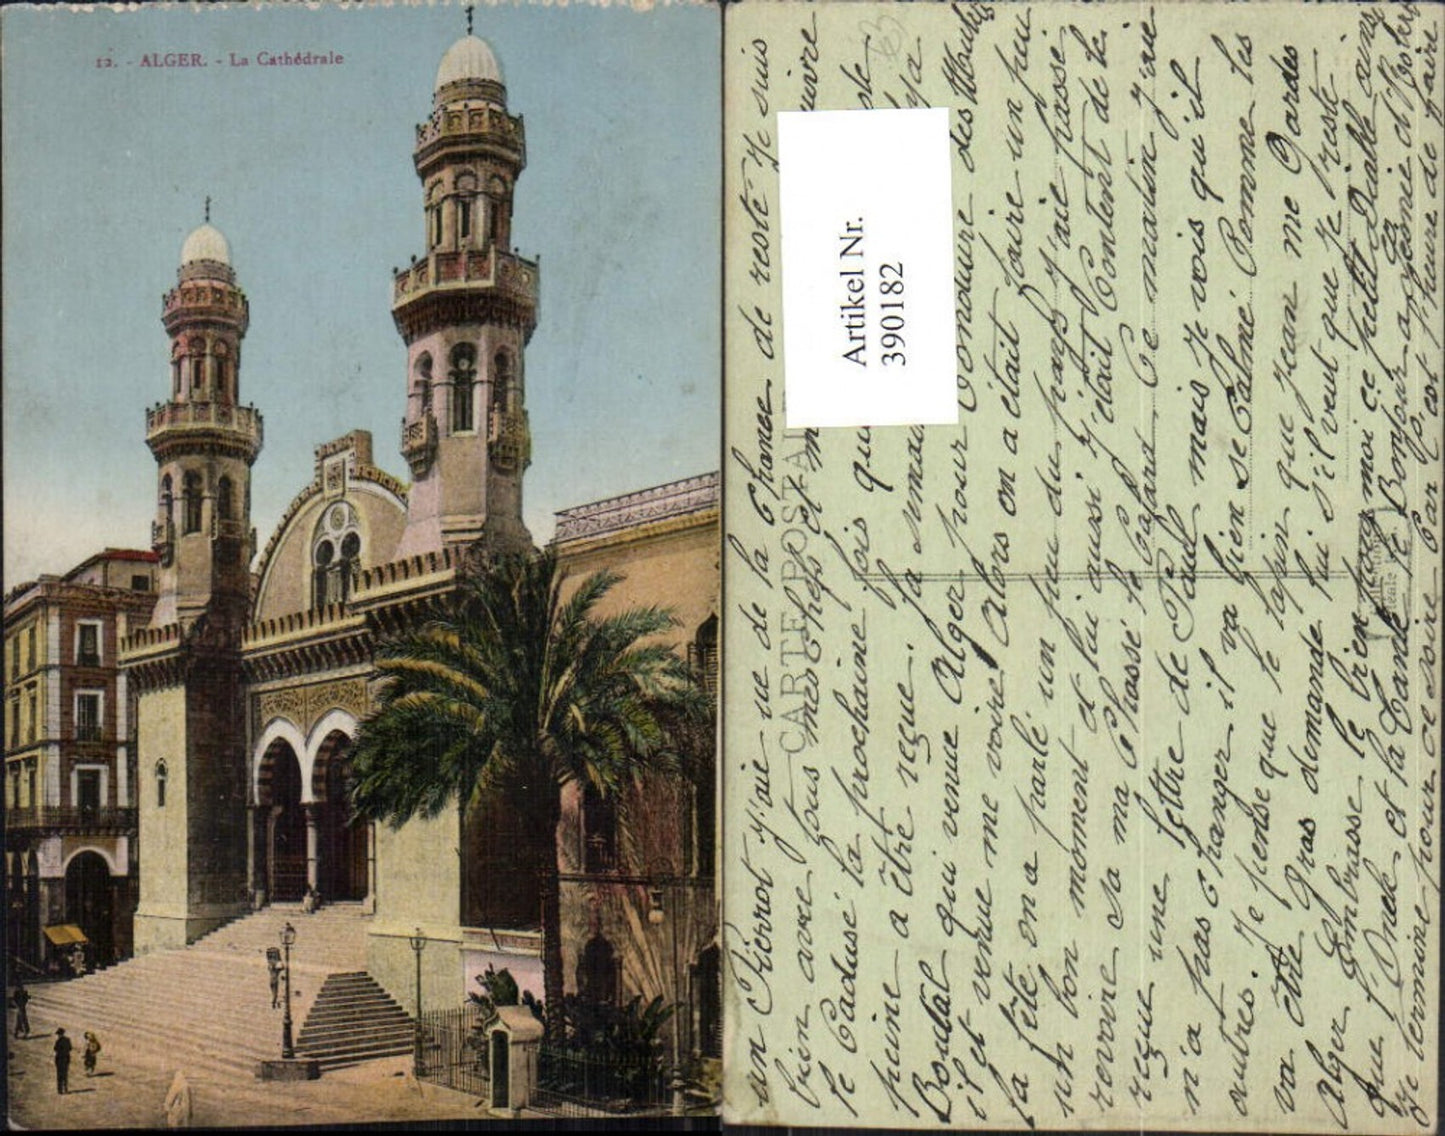 12. - ALGER. - La Cathédrale
Artikel Nr.
390182
CARTE POSTALE
un Pierrot j'aie vue de la Chance de reste je suis
bien avec tous mes chefs et
te Causé la prochaine fois
peine a être reçue. Sa
Boulal qui venue Alger pour Conduire des
il et venue me voire Alors on a était faire un peu
la fête on a parlé un peu du pays j'aie passé
un bon moment a lui aussi j'était Content de le
revoire sa ma Chassé le Cafard Ce matin j'aie
reçue une lettre de Paul mais je vois qu'il
n'a pas changer il va bien se Calmé Comme les
autres. Je pense que le lapin que Jean me Gardes
va être Gras demande lui s'il veut que je reste
Alger Embrasse le bien pour moi ce petit Diable ainsi
que l'Oncle et la Tante Le Bonjour a
je termine pour ce soire Car c'est l'heure de faire